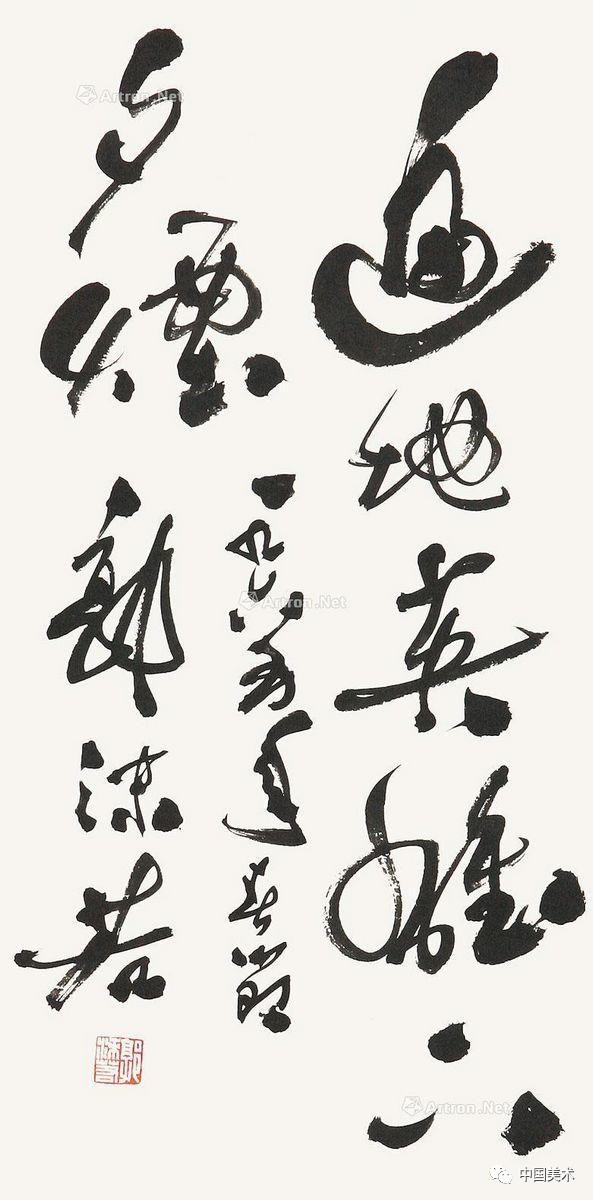 遍地英雄下
夕煙
一九六年春節
郭沫若
郭沫若
Artron.Net
Artron.Net
Artron.Net
中国美术